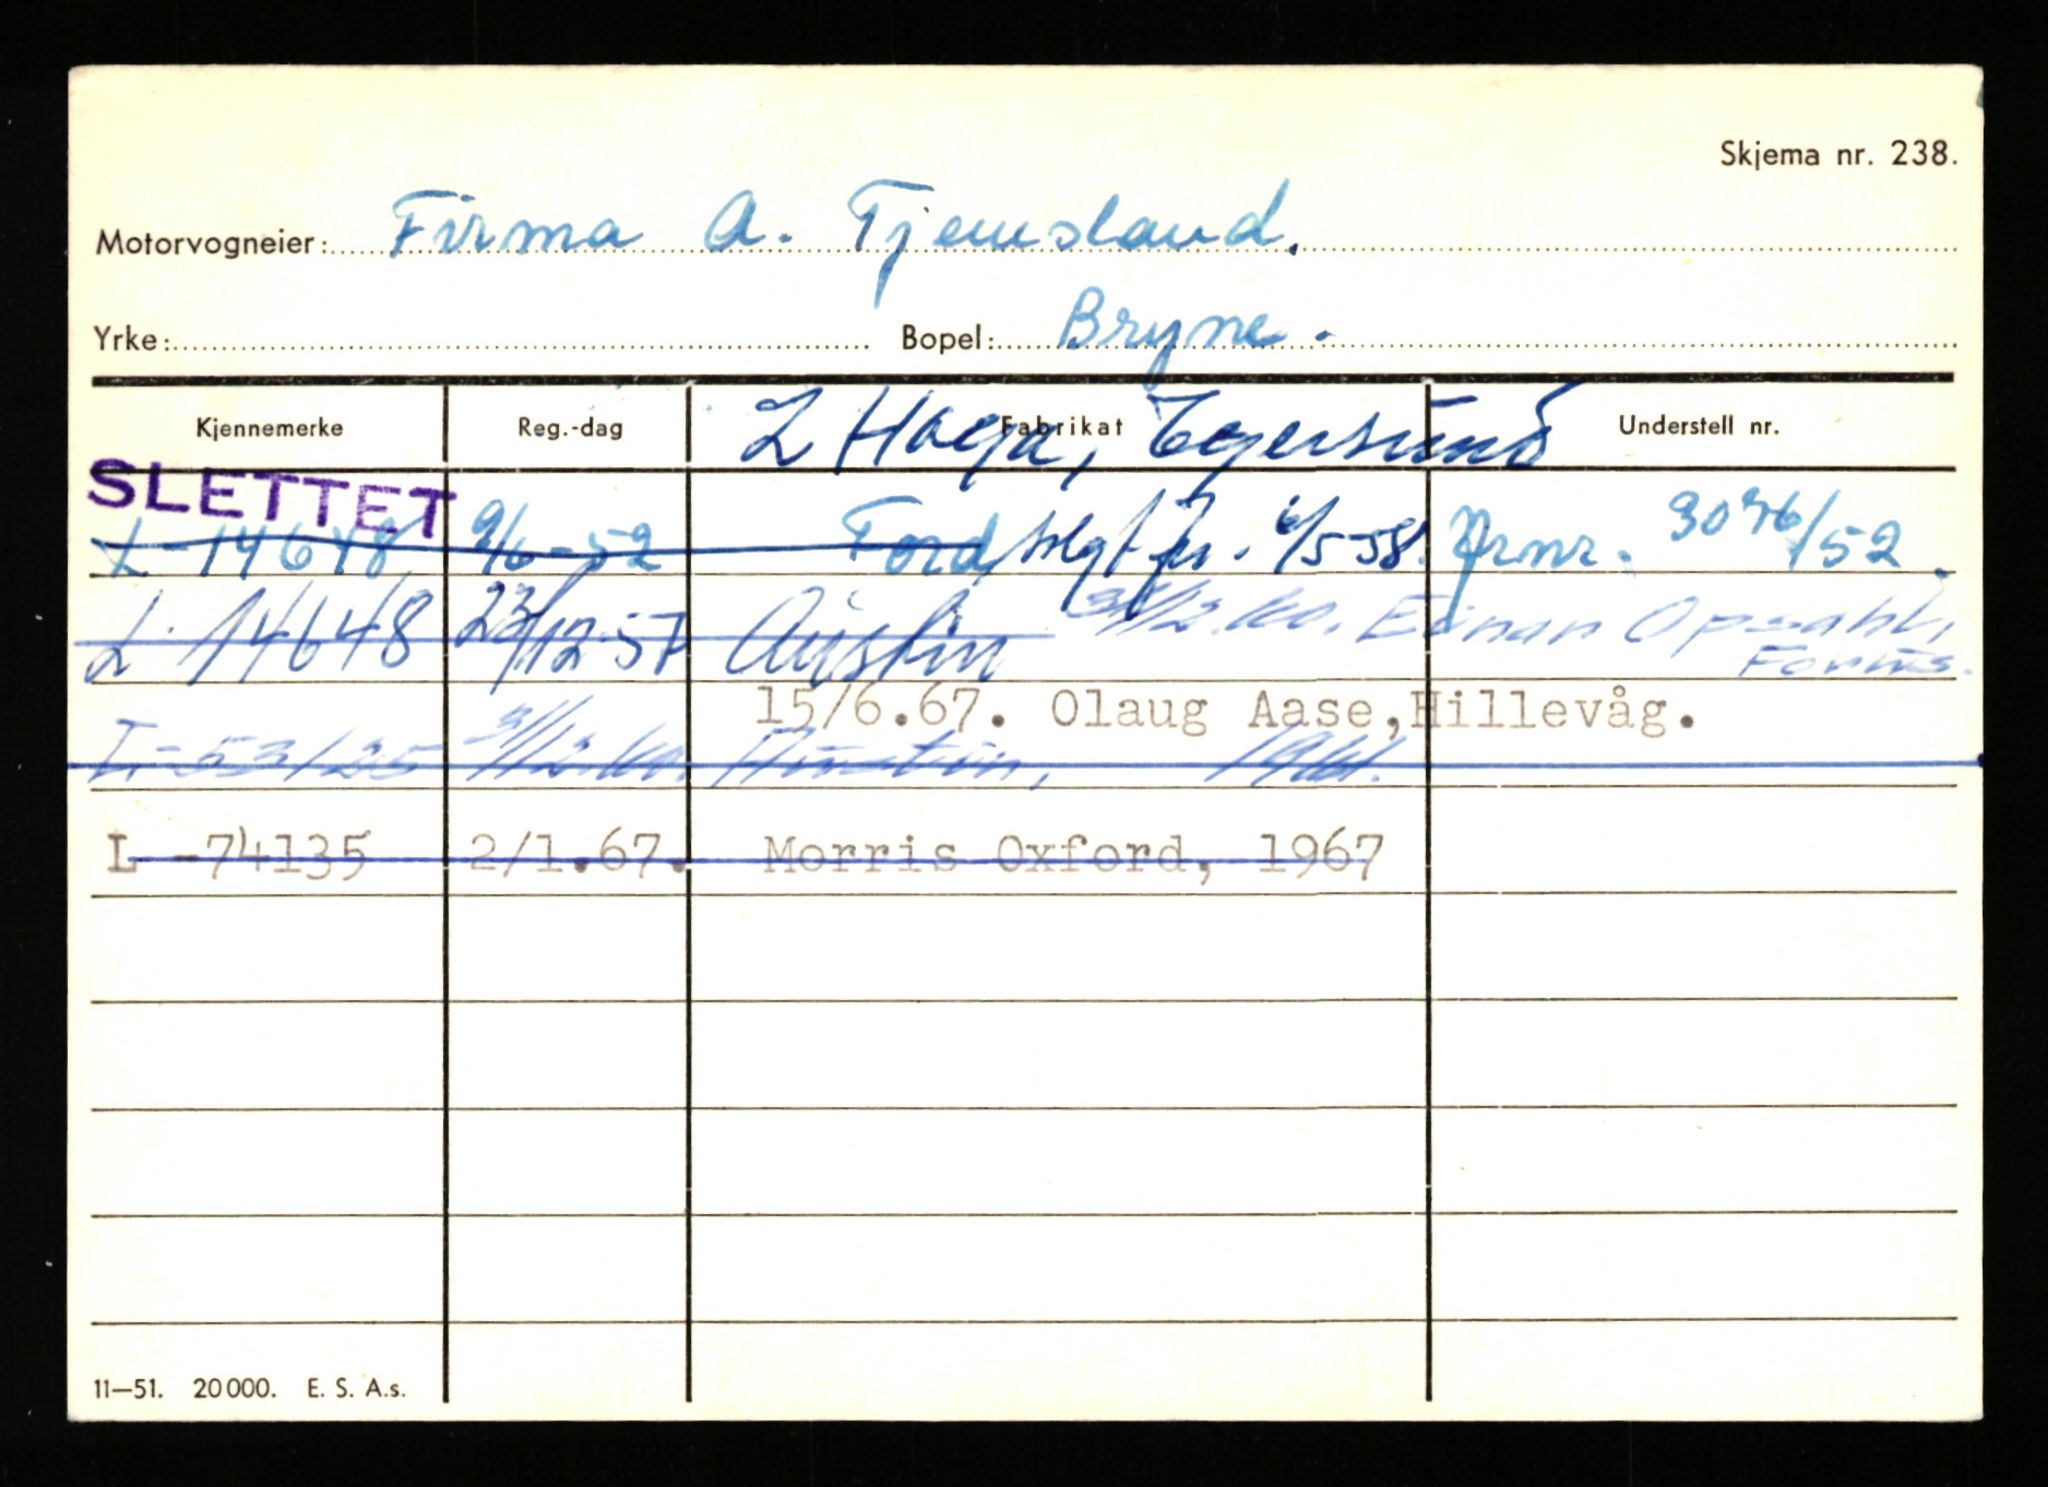 Skjema nr. 238.
Motorvogneier: Firma A. Tjemsland.
Yrke: Bopel: Bryne.
Kjennemerke Reg.-dag Fabrikat Understell nr.
L Haga, Egersund
SLETTET
L-14648 9/6-52 Ford solgt fr. 6/5-58. Prnr. 3076/52.
L-14648 23/12-57 Austin 31/12.60. Einar Opsahl,
Forus.
15/6.67. Olaug Aase, Hillevåg.
L-53125 31/12.60. Austin, 1961.
L -74135 2/1.67. Morris Oxford, 1967
11—51. 20000. E. S. A.s.